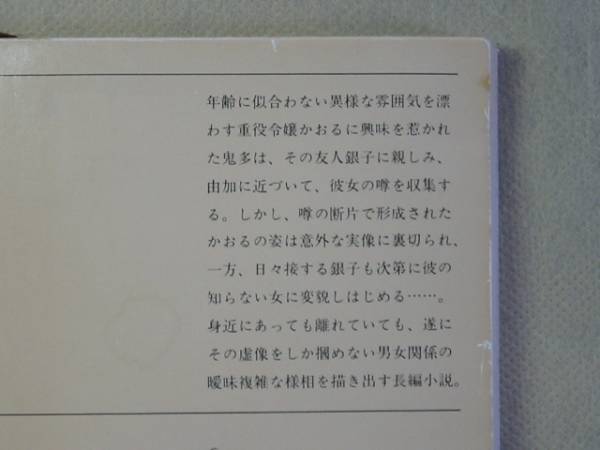 年齢に似合わない異様な雰囲気を漂
わす重役令嬢かおるに興味を惹かれ
た鬼多は、その友人銀子に親しみ、
由加に近づいて、彼女の噂を収集す
る。しかし、噂の断片で形成された
かおるの姿は意外な実像に裏切られ、
一方、日々接する銀子も次第に彼の
知らない女に変貌しはじめる……。
身近にあっても離れていても、遂に
その虚像をしか摑めない男女関係の
曖昧複雑な様相を描き出す長編小説。